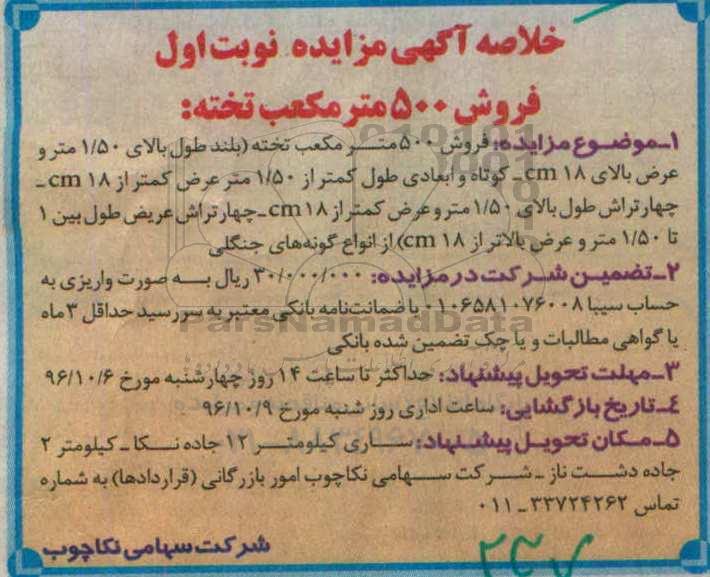 خلاصه آگهی مزایده نوبت اول
فروش ۵۰۰ متر مکعب تخته:
۱ـ موضوع مزایده: فروش ۵۰۰ متر مکعب تخته (بلند طول بالای ۱/۵۰ متر و
عرض بالای ۱۸ cm ـ کوتاه و ابعادی طول کمتر از ۱/۵۰ متر عرض کمتر از ۱۸ cm ـ
چهارتراش طول بالای ۱/۵۰ متر و عرض کمتر از ۱۸ cm ـ چهارتراش عریض طول بین ۱
تا ۱/۵۰ متر و عرض بالاتر از ۱۸ cm) از انواع گونه‌های جنگلی
۲ـ تضمین شرکت در مزایده: ۳۰/۰۰۰/۰۰۰ ریال به صورت واریزی به
حساب سیبا ۰۱۰۶۵۸۱۰۷۶۰۰۸ یا ضمانت‌نامه بانکی معتبر به سررسید حداقل ۳ ماه
یا گواهی مطالبات و یا چک تضمین شده بانکی
۳ـ مهلت تحویل پیشنهاد: حداکثر تا ساعت ۱۴ روز چهارشنبه مورخ ۹۶/۱۰/۶
۴ـ تاریخ بازگشایی: ساعت اداری روز شنبه مورخ ۹۶/۱۰/۹
۵ـ مکان تحویل پیشنهاد: ساری کیلومتر ۱۲ جاده نکا ـ کیلومتر ۲
جاده دشت ناز ـ شرکت سهامی نکاچوب امور بازرگانی (قراردادها) به شماره
تماس ۳۳۷۲۴۲۶۲ ـ ۰۱۱
شرکت سهامی نکاچوب
ParsNamadData